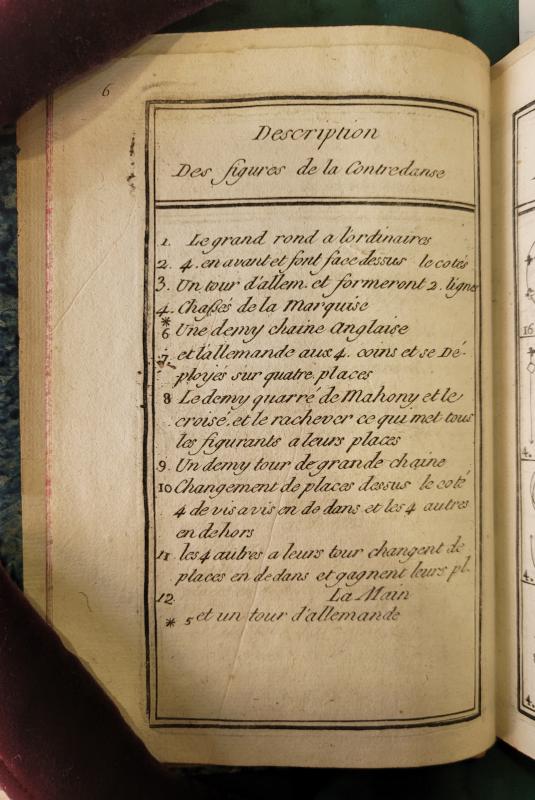 6
Description
Des figures de la Contredanse
1. Le grand rond a l'ordinaires
2. 4. en avant et font face dessus le cotés
3. Un tour d'allem. et formeront 2. lignes
4. Chassés de la Marquise
*
6 Une demy chaine Anglaise
7. et l'allemande aux 4. coins et se Dé-
ployés sur quatre places
8 Le demy quarré de Mahony et le
croisé, et le rachever ce qui met tous
les figurants a leurs places
9. Un demy tour de grande chaine
10 Changement de places dessus le coté
4 de vis a vis en de dans et les 4 autres
en dehors
11. les 4 autres a leurs tour changent de
places en dedans et gagnent leurs pl.
12. La Main
* 5 et un tour d'allemande
16
4.